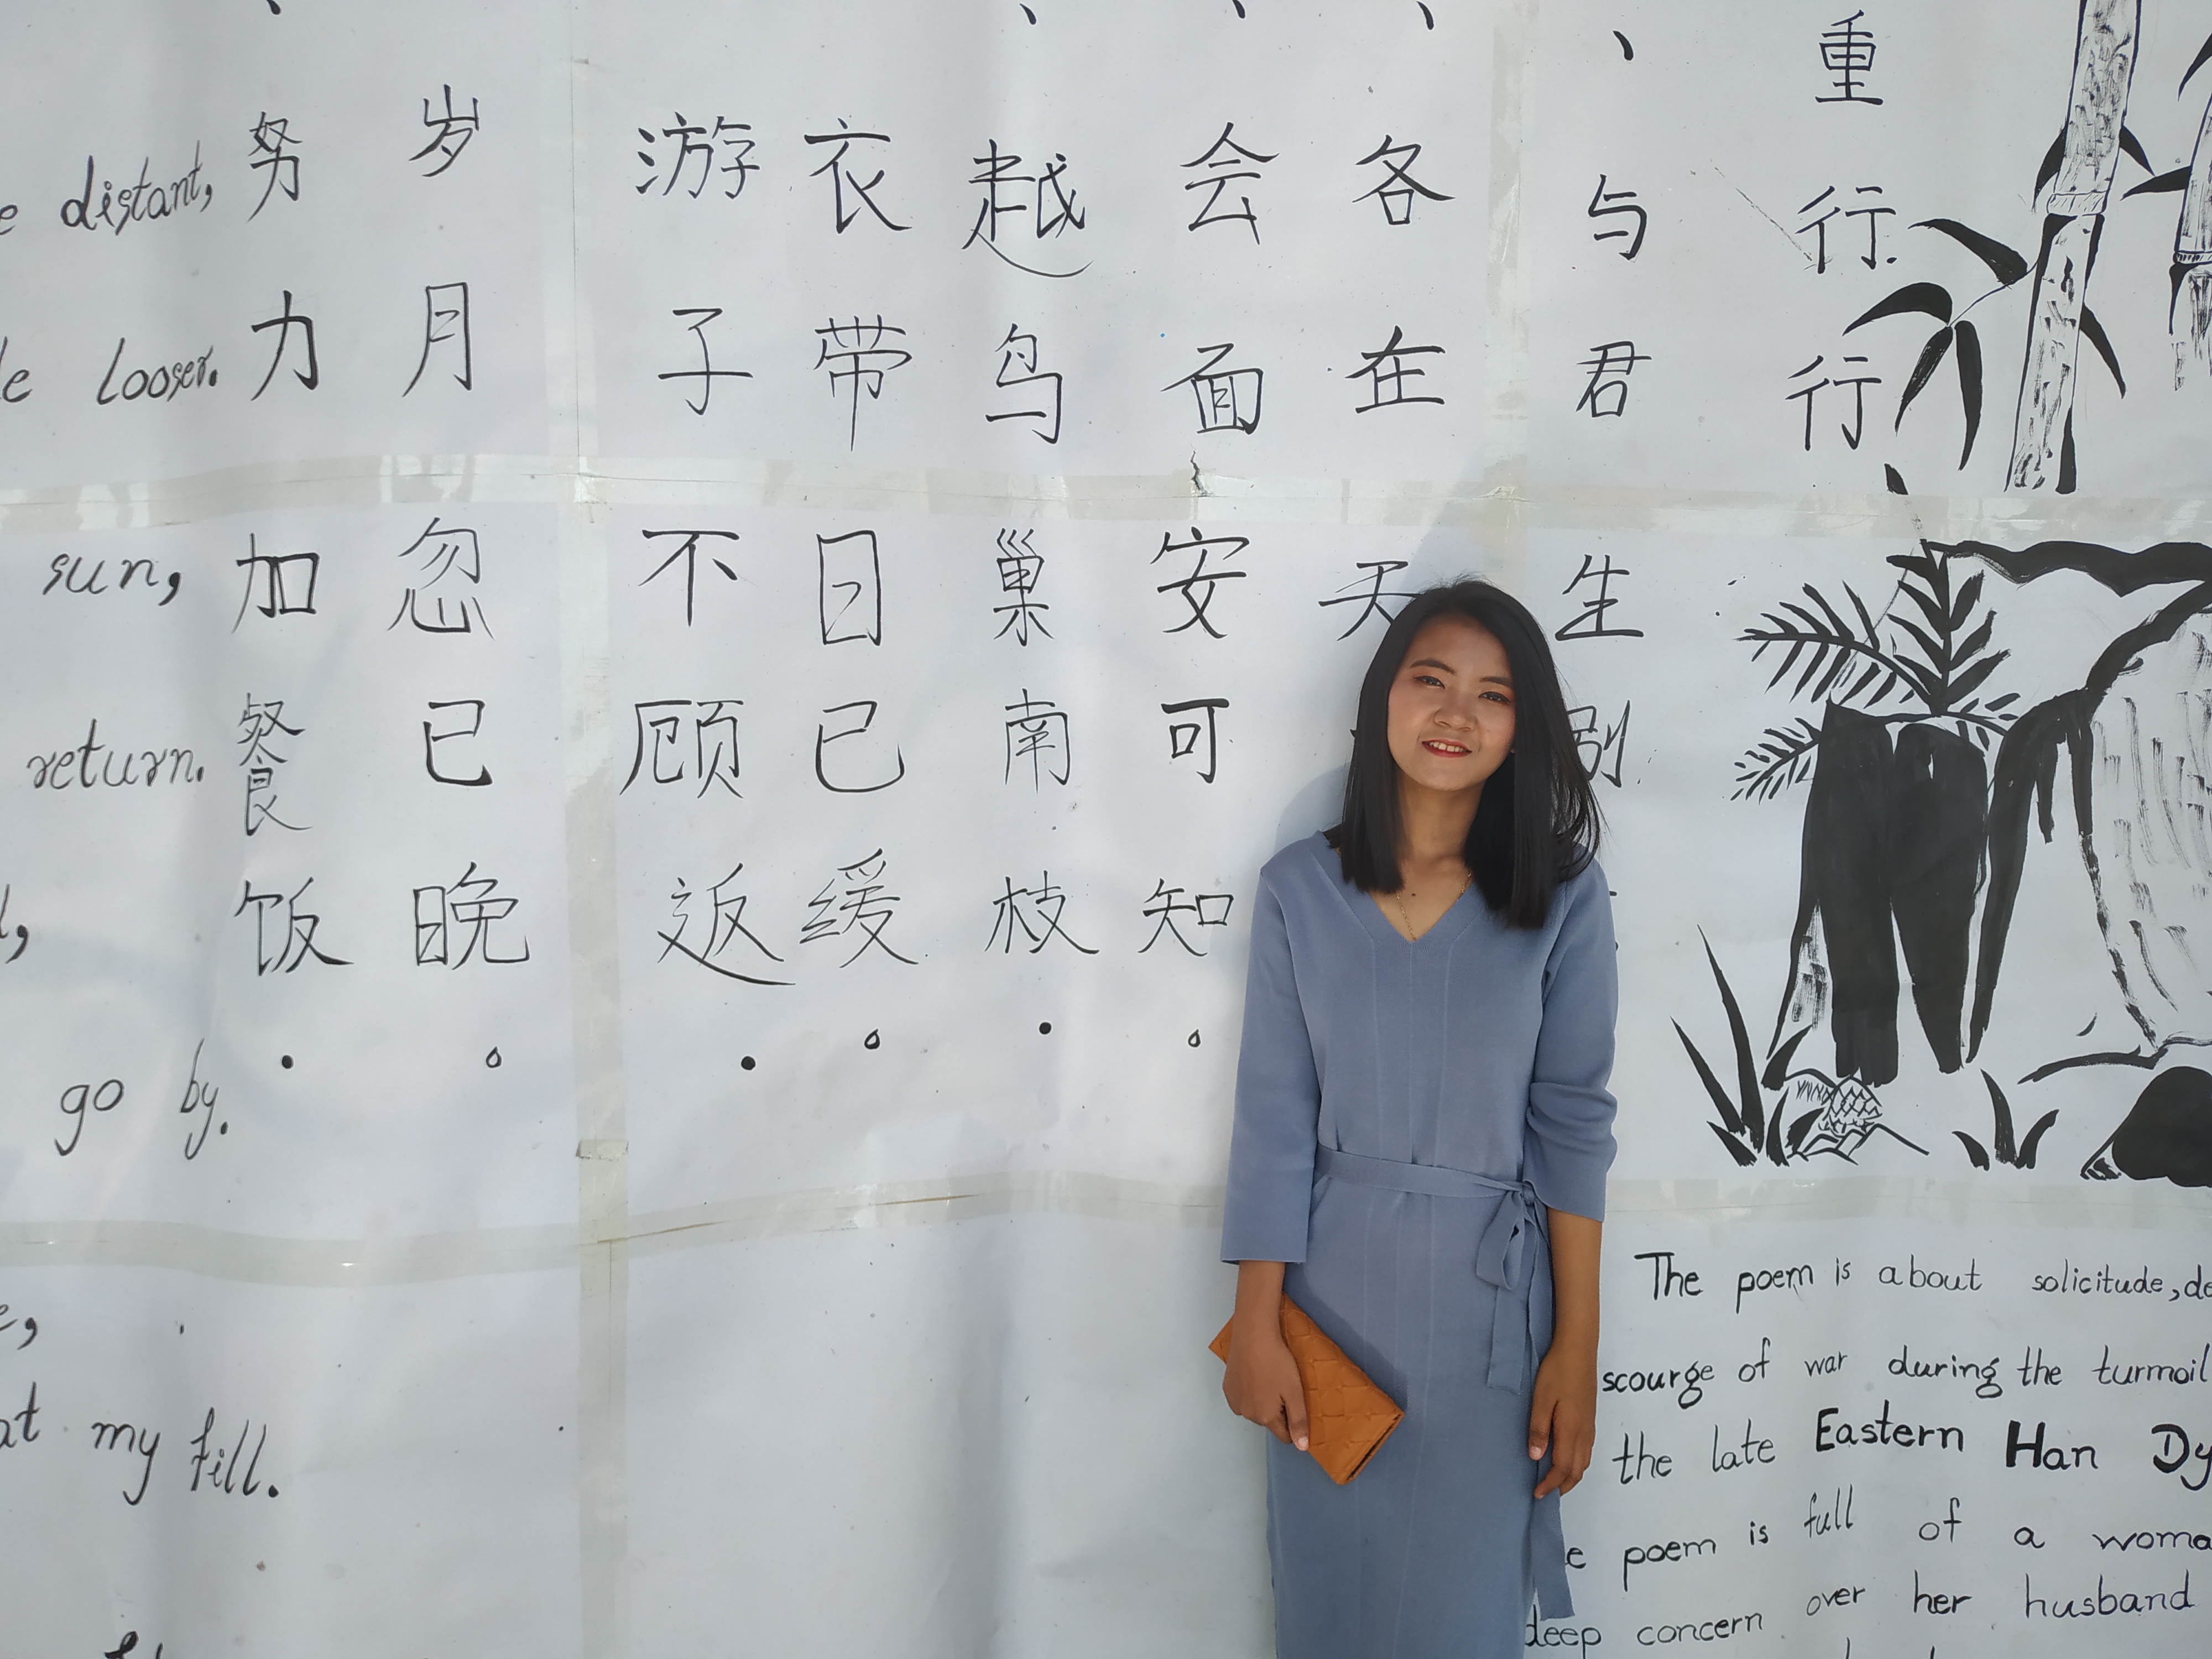 重行行、
、与君生别
、各在天
、会面安可知。
、越鸟巢南枝.
衣带日已缓。
游子不顾返.
岁月忽已晚。
、努力加餐饭.
distant,
looser.
sun,
return.
go by.
my fill.
The poem is about solicitude,
scourge of war during the turmoil
the late Eastern Han
poem is full of a
deep concern over her husband